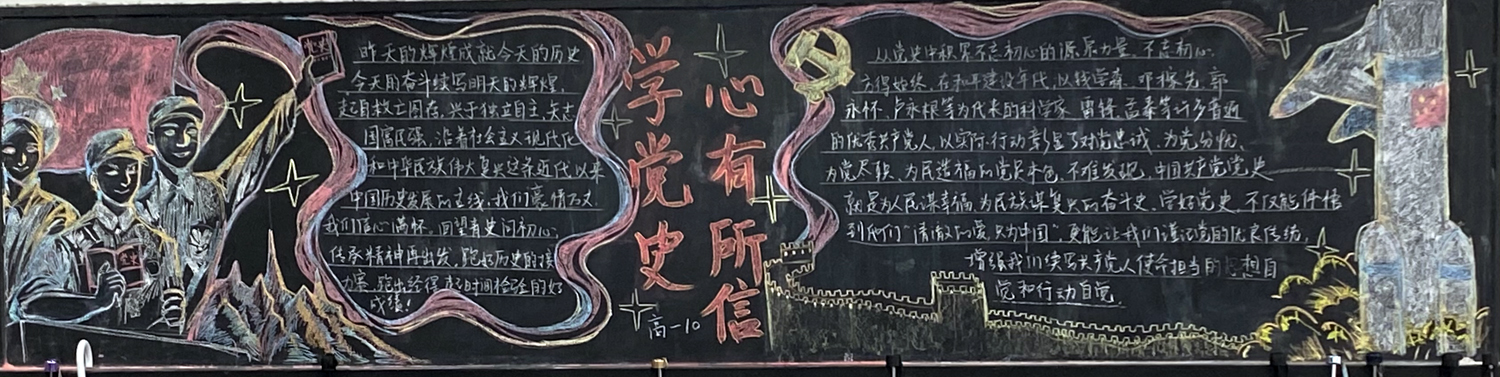 党史
党史
昨天的辉煌成就今天的历史
今天用奋斗续写明天的辉煌,
起自救亡图存,兴于独立自主,矢志
国富民强,沿着社会主义现代化
和中华民族伟大复兴这条近代以来
中国历史发展的主线,我们豪情万丈
我们信心满怀,回望青史问初心,
传承精神再出发,跑好历史的接
力赛,跑出经得起时间检验的好
成绩!
学党史
心有所信
高一10
从党史中积累不忘初心的源泉力量,不忘初心,
方得始终,在和平建设年代,以钱学森、邓稼先、郭
永怀、卢永根等为代表的科学家,雷锋、孟泰等许多普通
的优秀共产党人,以实际行动彰显了对党忠诚、为党分忧、
为党尽职、为民造福的党员本色,不难发现,中国共产党党史
就是为人民谋幸福,为民族谋复兴的奋斗史,学好党史,不仅能体悟
到他们"清澈的爱,只为中国",更能让我们谨记党的优良传统,
增强我们续写共产党人使命担当的思想自
觉和行动自觉.